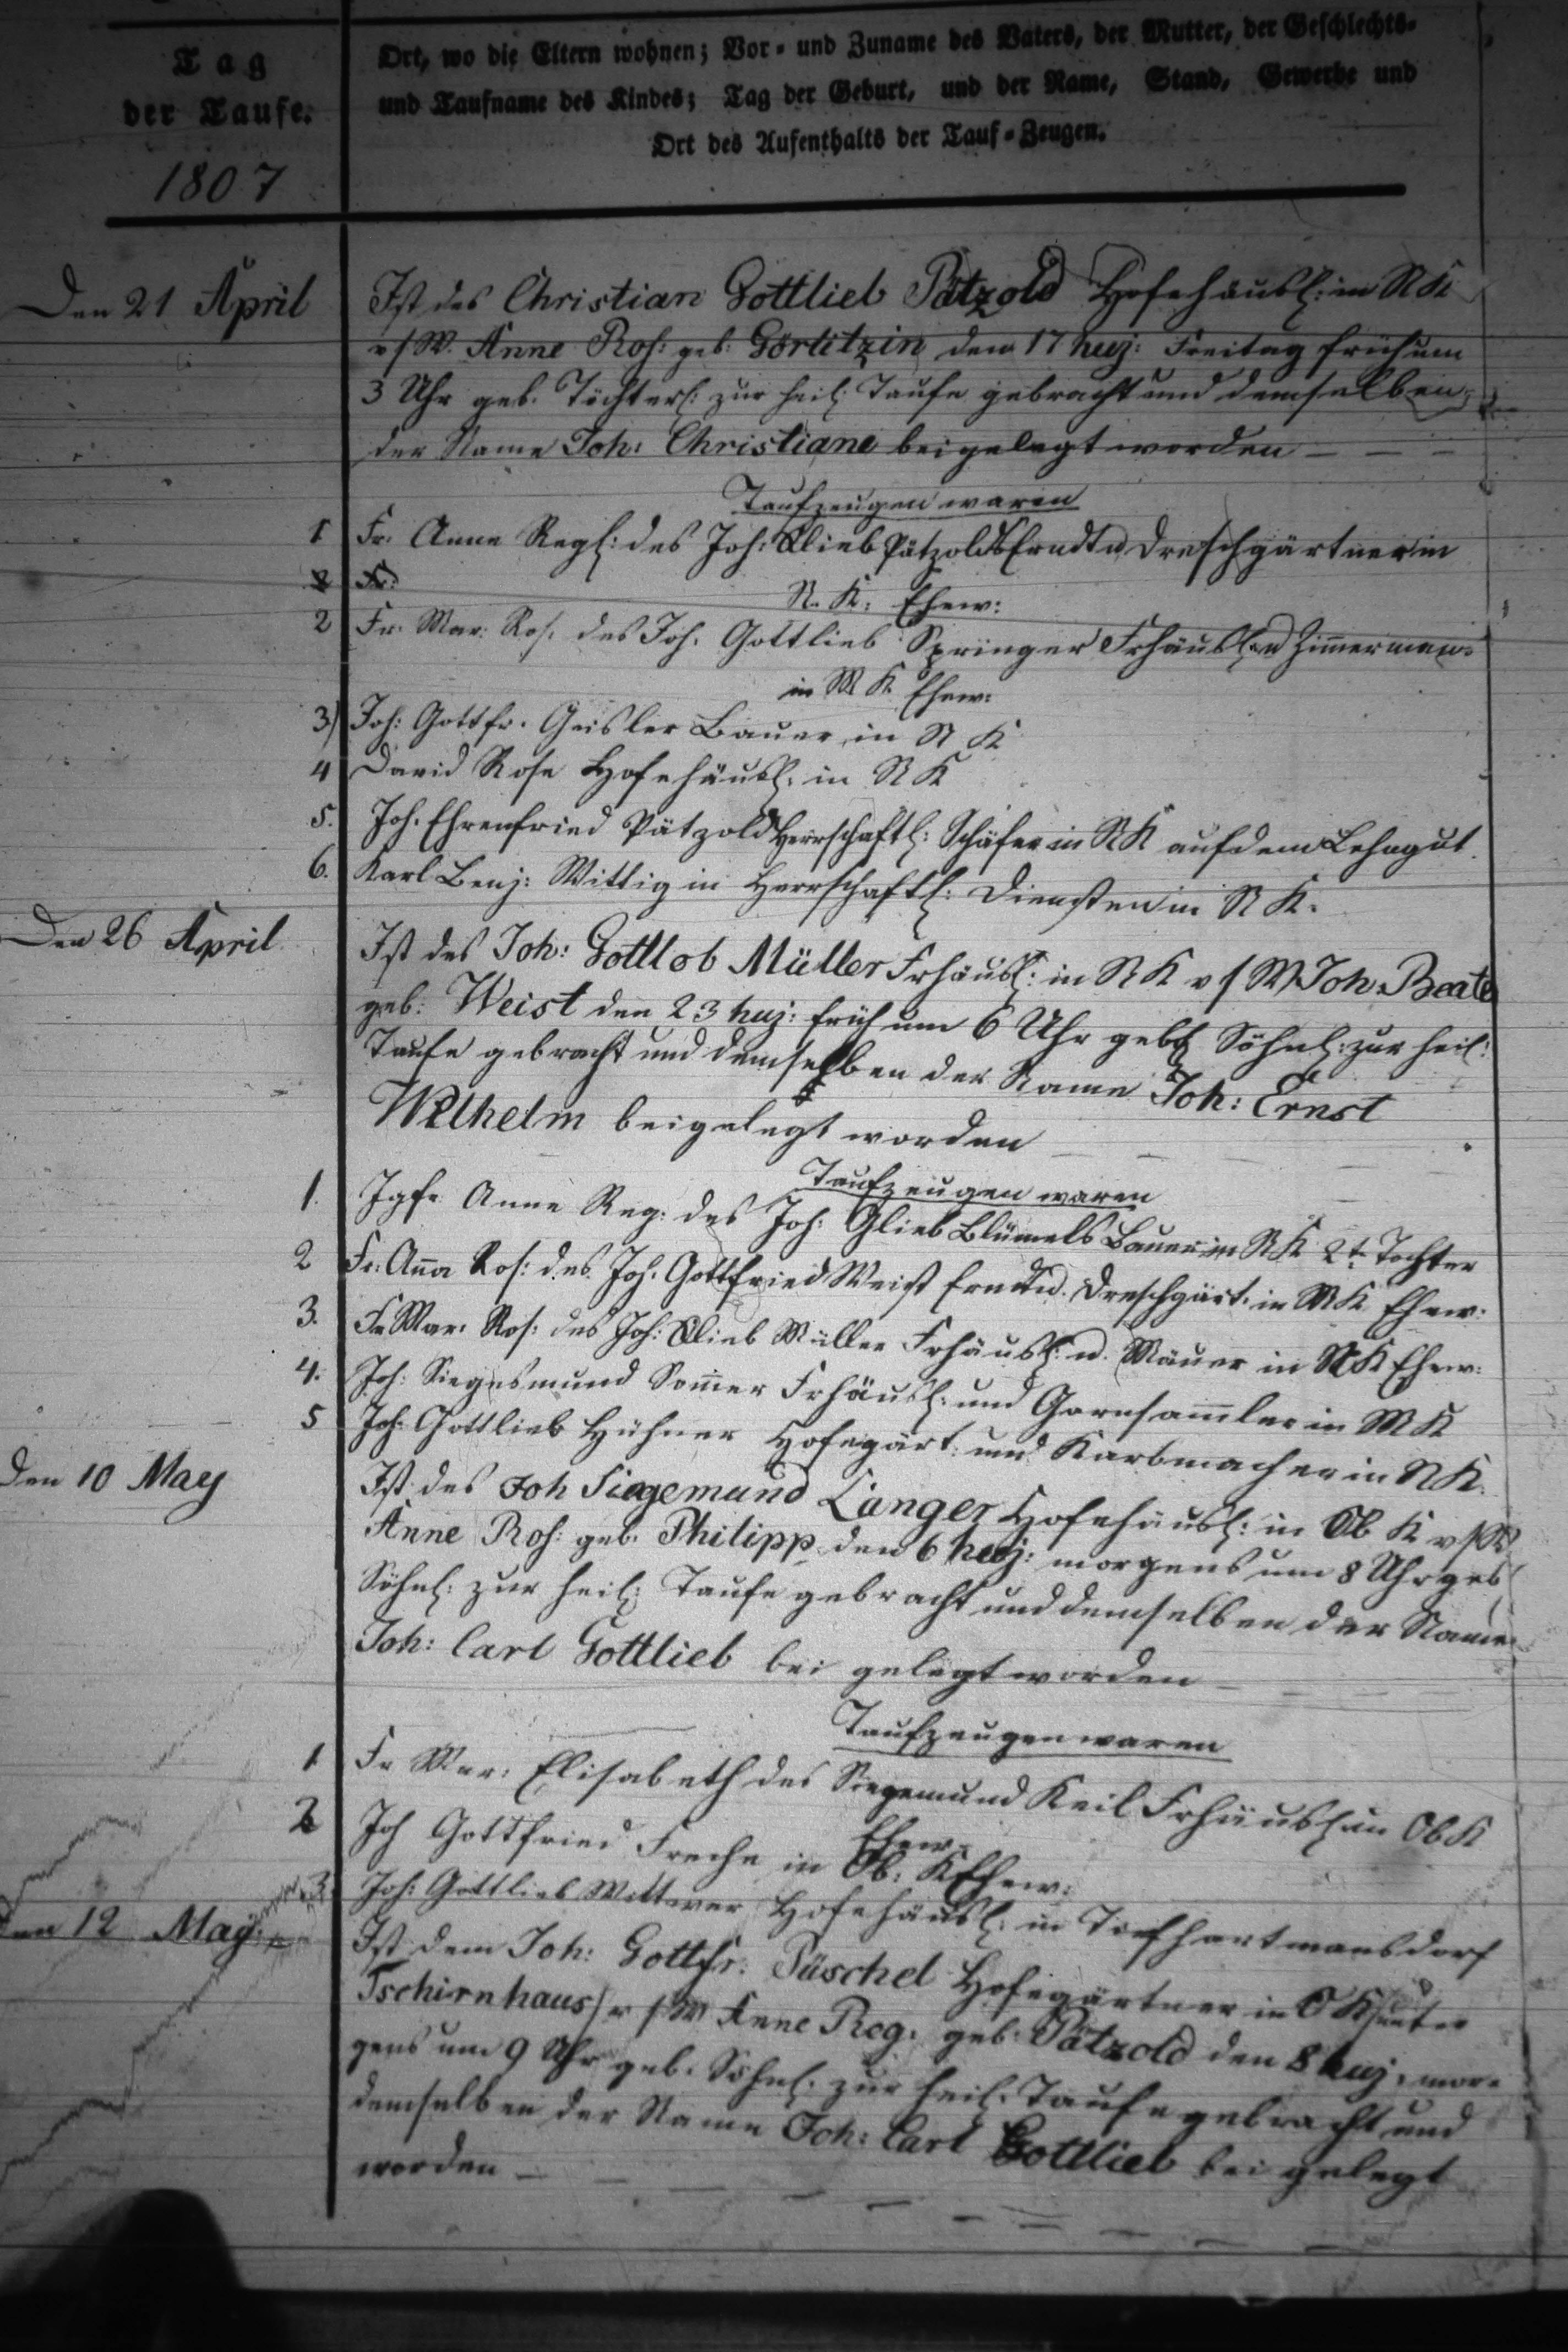 Tag
der Taufe.
1807
Ort, wo die Eltern wohnen; Vor- und Zuname des Vaters, der Mutter, der Geschlechts-
und Taufname des Kindes; Tag der Geburt, und der Name, Stand, Gewerbe und
Ort des Aufenthalts der Tauf-Zeugen.
Den 21 April
Ist des Christian Gottlieb Pätzold Hofehäusl: in N K
v s W. Anne Ros: geb: Görlitzin den 17 huj: Freitag früh um
3 Uhr geb. Töchterl: zur heil: Taufe gebracht und demselben
der Name Joh: Christiane beigelegt worden — — —
Taufzeugen waren
1 Fr. Anne Regl: des Joh: Glieb Pätzolds Erndt u Dreschgärtner in
2 Fr:
N. K. Ehew:
2 Fr. Mar: Ros. des Joh. Gottlieb Springer Frhäusl. u Zimmerman
in M K Ehew:
3) Joh: Gottfr. Geisler Bauer in N K
4 David Rose Hofehäusl: in N K
5. Joh. Ehrenfried Pätzold Herrschaftl: Schäfer in N K auf dem Lehngut.
6. Karl Benj: Wittig in Herrschaftl: Diensten in N K.
Den 26 April
Ist des Joh: Gottlob Müller Frhäusl: in N K v s W Joh. Beate
geb: Weist den 23 huj: früh um 6 Uhr geb Söhnl: zur heil:
Taufe gebracht und demselben der Name Joh: Ernst
Wilhelm beigelegt worden — — —
Taufzeugen waren
1. Jgfr Anne Reg: des Joh: Glieb Blümels Bauer in N K 2t. Tochter
2 Fr: Anna Ros: des Joh. Gottfried Weist Erndt u. Dreschgärt: in M K Ehew:
3. Fr Mar: Ros: des Joh: Glieb Müller Frhäusl: u. Mäurer in N K Ehew:
4. Joh: Siegesmund Somer Frhäusl: und Garnsamler in M K
5 Joh: Gottlieb Hühner Hofegärt: und Korbmacher in N K.
Den 10 May
Ist des Joh Siegemund Langer Hofehäusl: in Ob K v s W
Anne Ros: geb: Philipp den 6 huj: morgens um 8 Uhr geb
Söhnl: zur heil: Taufe gebracht und demselben der Name
Joh: Carl Gottlieb bei gelegt worden
Taufzeugen waren
1 Fr Mar: Elisabeth des Siegemund Keil Frhäusl in Ob K
Ehew
2 Joh Gottfried Freche in Ob: K Ehew:
3 Joh: Gottlieb Wittwer Hofehäusl: in Tiefhartmansdorf
Den 12 May
Ist dem Joh: Gottfr: Püschel Hofegärtner in O K (unter
Tschirnhaus) v s W Anne Reg. geb. Pätzold den 8 huj: mor-
gens um 9 Uhr geb. Söhnl. zur heil. Taufe gebracht und
demselben der Name Joh: Carl Gottlieb bei gelegt
worden —